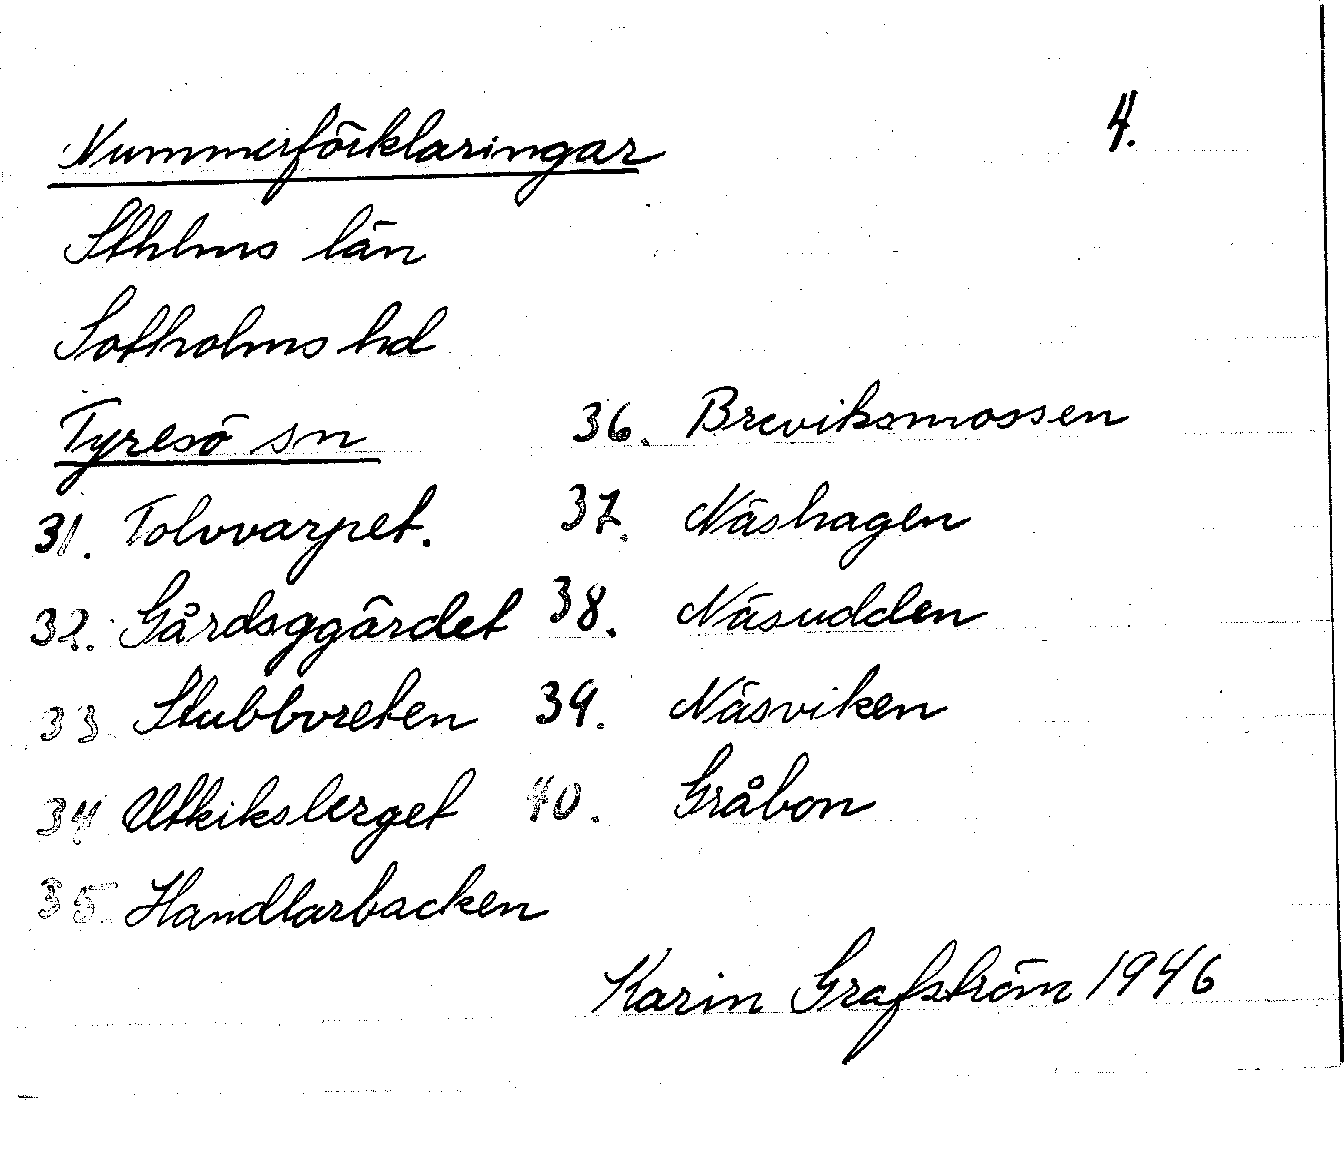 4.
Nummerförklaringar
Sthlms län
Sotholms hd
Tyresö sn
31. Tolvvarpet.
32. Gårdsggärdet
33 Stubbvreten
34 Utkiksberget
35. Handlarbacken
36. Breviksmossen
37. Näshagen
38. Näsudden
39. Näsviken
40. Gråbon
Karin Grafström 1946